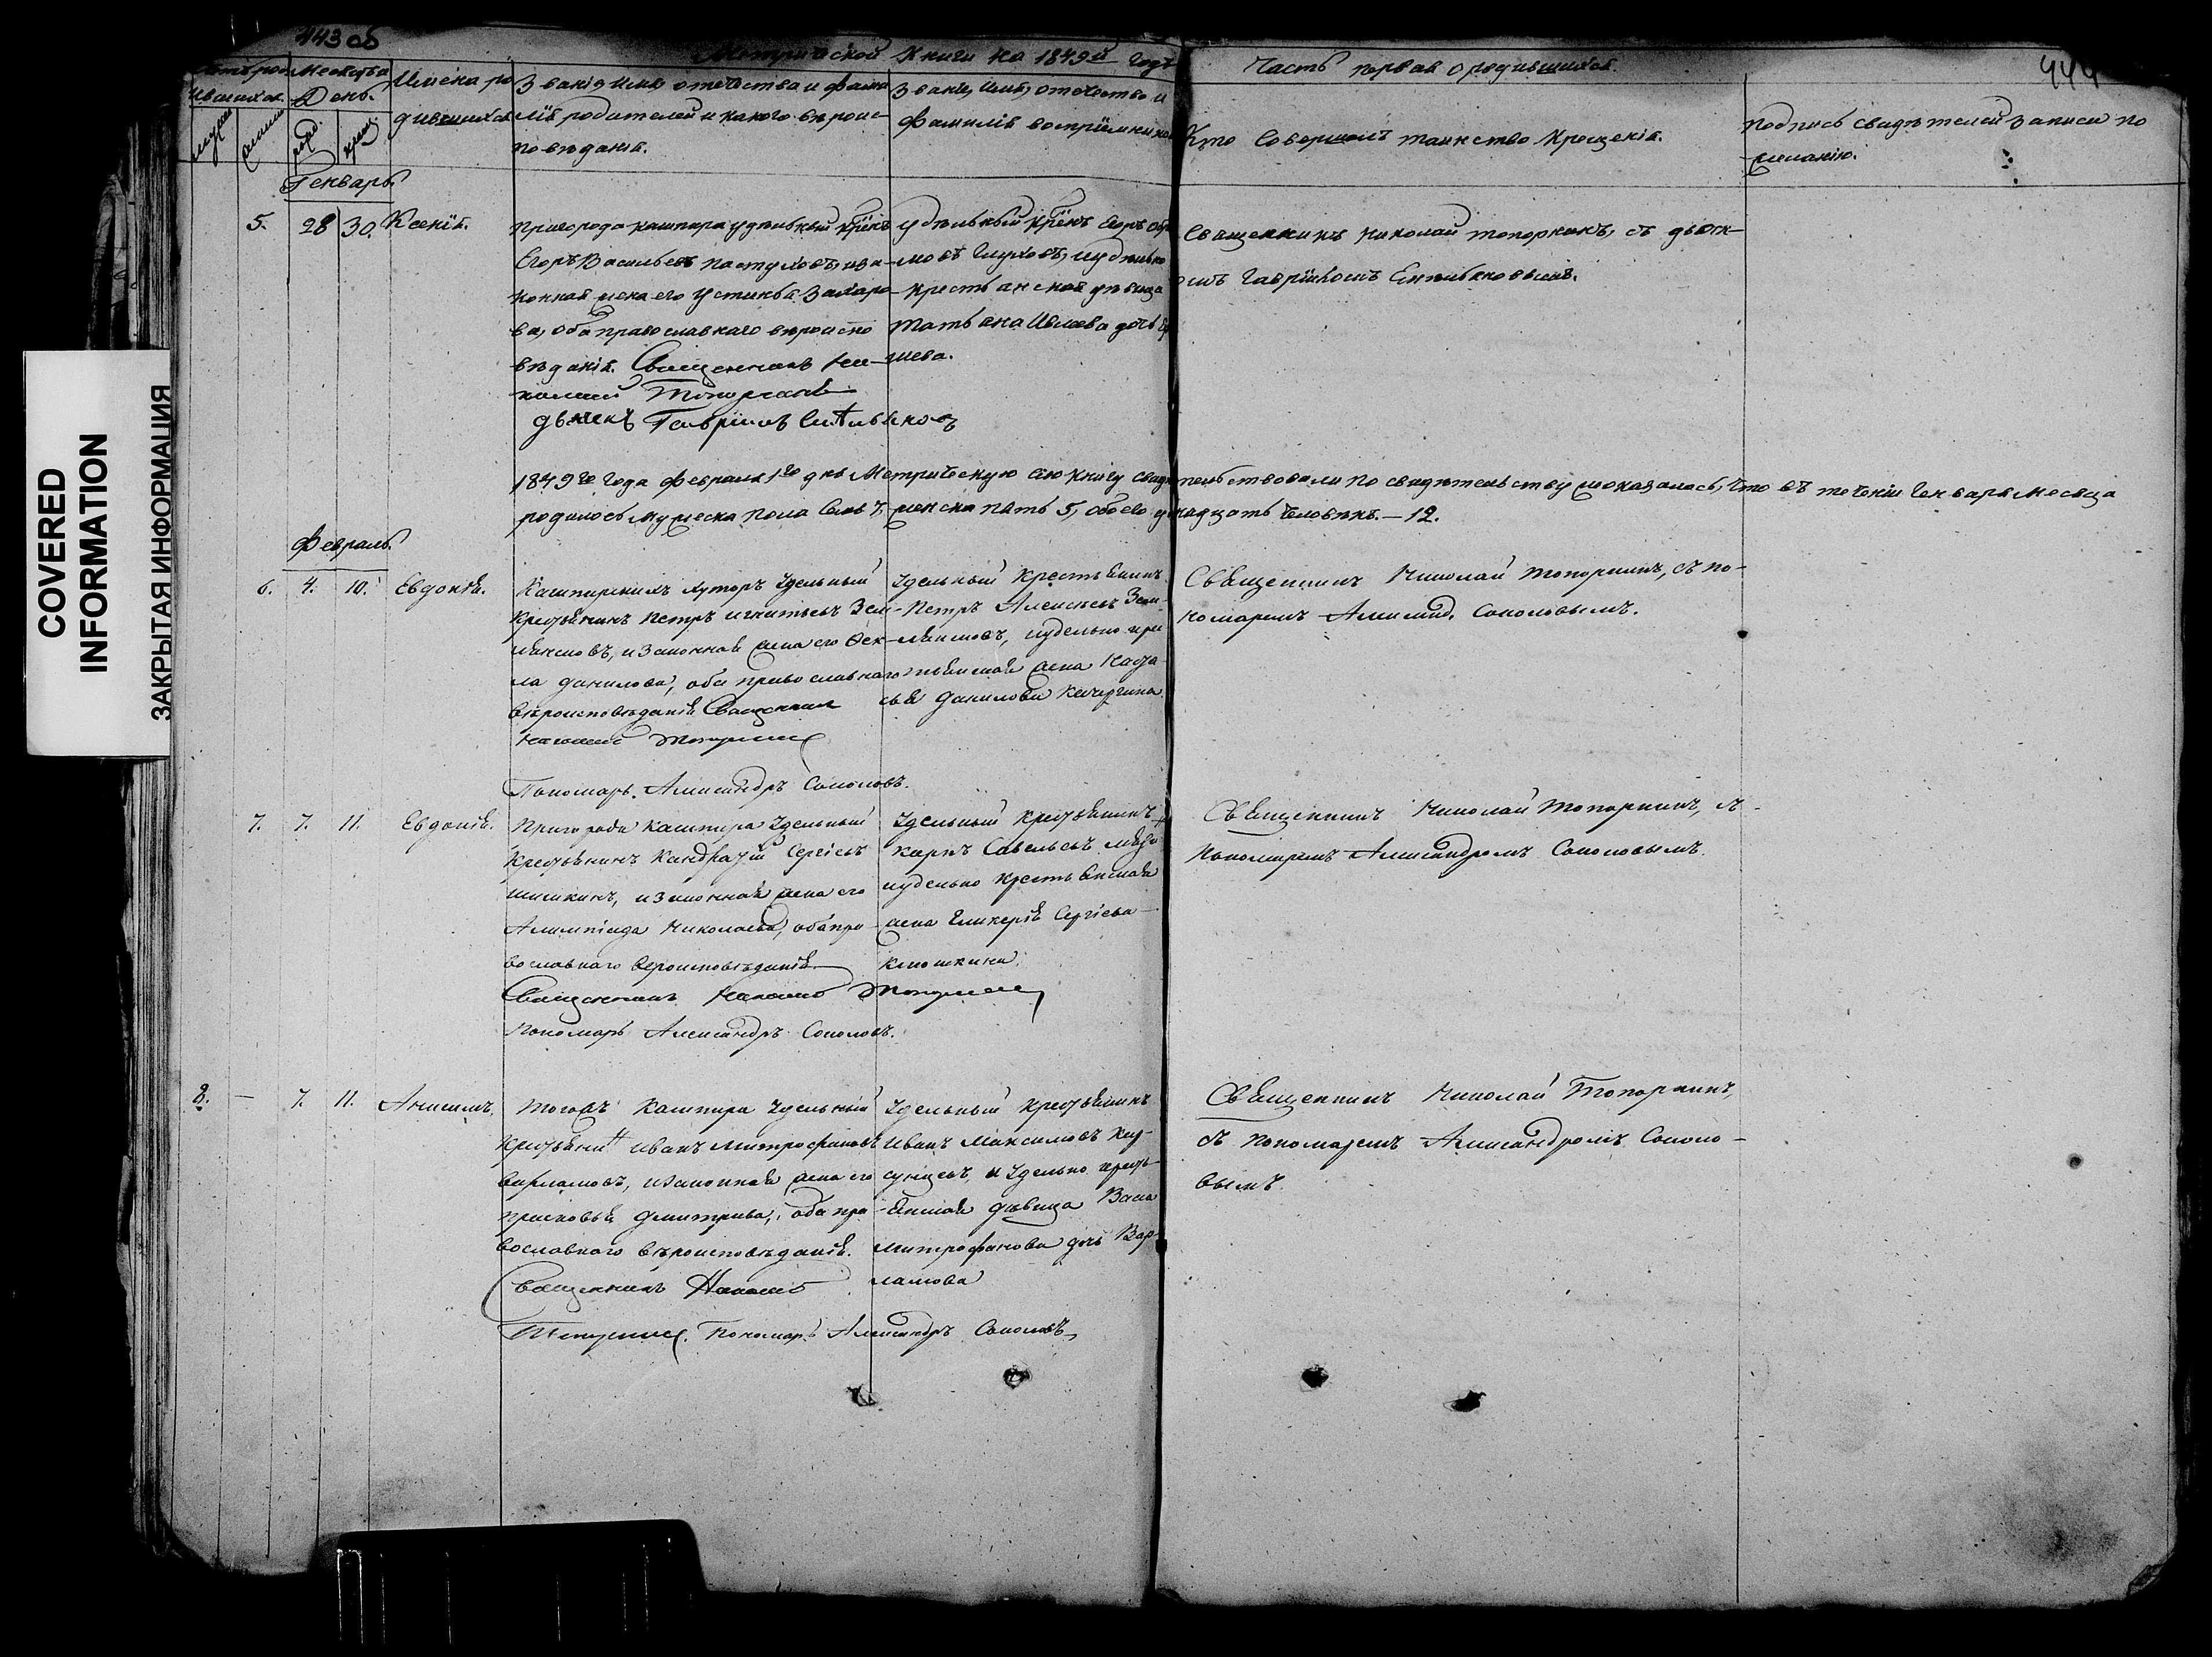 443 об
Метрической Книги на 1849й Годъ
Часть первая о родившихся.
444
Месяцъ и
День.
рожд. крещ.
Имена ро
дившихся
Званіе имя, отечество и фами
лія родителей и какого вѣроис-
повѣданія.
Званіе, имя, отечество и
фамилія воспріемниковъ
Кто совершалъ таинство Крещенія.
подпись свидѣтелей записи по
желанію.
Генварь
5. 28 30. Ксенія.
пригорода кашпира удѣльный кр̃нъ
Егоръ Васильевъ пастуховъ, иза-
конная жена его Устинья Захаро
ва, оба православнаго вѣроиспо
вѣданія. Священникъ Ни-
колай Топоркинъ
дьячекъ Гавріилъ
удѣльный кр̃нъ Егоръ
мовъ Глуховъ, и удѣльно
крестьянской дѣвица
татьяна Ивлева дочь
шева.
Священникъ Николай топоркинъ, съ дьяч-
омъ Гавріиломъ
1849го года февраля 1го дня Метрическую сію книгу свидѣтельствовали по свидѣтельству оказалось, что въ теченіи Генваря месяца
родилось мужеска пола семь 7. женска пять 5, обоего двенадцать человѣкъ. — 12.
Февраль.
6. 4. 10. Евдокія.
Кашпирскихъ хуторъ Удельный
Крестьянинъ Петръ игнатьевъ Зем-
ляновъ, и законная жена его Фек-
ла данилова, оба православнаго
вѣроисповѣданія Священникъ
Николай Топоркинъ
Пономарь. Александръ Соколовъ.
Удельный Крестьянинъ
Петръ Алексѣевъ Зем-
ляновъ, и удельно кре
стьянская жена Наста
сья Данилова Качергина
Священникъ Николай топоркинъ, съ по-
номаремъ Александ. Соколовымъ.
7. 7. 11. Евдокія.
Пригорода Кашпира Удельный
Крестьянинъ Кандратій Сергіевъ
шишкинъ, и законная жена его
Алимпіада Николаева, оба пра-
вославнаго вероисповѣданія
Священникъ Николай Топоркинъ
Пономарь Александръ Соколовъ.
Удельный Крестьянинъ
карпъ Савельевъ
и удельно крестьянская
жена Гликерія Сергіева
Клюшкина.
Священникъ Николай топоркинъ, съ
Пономаремъ Александромъ Соколовымъ.
8. — 7. 11. Анисимъ.
Тогожъ Кашпира Удельный
Крестьянинъ Иванъ Митрофановъ
варламовъ, и законная жена его
прасковья Дмитріева, оба пра-
вославнаго вѣроисповѣданія.
Священникъ Николай
Топоркинъ. Пономарь Александръ Соколовъ
Удельный Крестьянинъ
Иванъ Максимовъ
и Удельно кресть-
янская дѣвица Васа
митрофанова дочь Вар-
ламова
Священникъ Николай Топоркинъ,
съ Пономаремъ Александромъ Соколо-
вымъ.
COVERED
INFORMATION
ЗАКРЫТАЯ ИНФОРМАЦИЯ